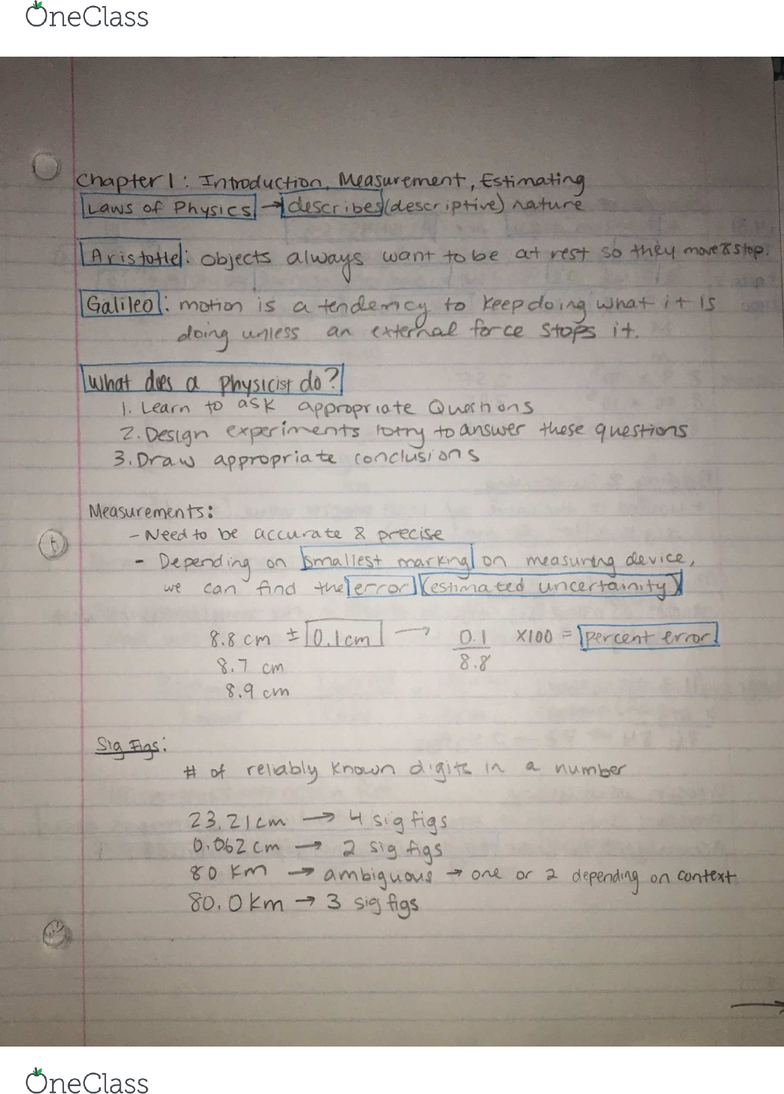 OneClass
Chapter 1: Introduction, Measurement, Estimating
Laws of Physics → describes (descriptive) nature
Aristotle: objects always want to be at rest so they move & stop.
Galileo: motion is a tendency to keep doing what it is
doing unless an external force stops it.
What does a physicist do?
1. Learn to ask appropriate Questions
2. Design experiments to try to answer these questions
3. Draw appropriate conclusions
Measurements:
- Need to be accurate & precise
- Depending on smallest marking on measuring device,
we can find the error (estimated uncertainity)
8.8 cm ± 0.1cm → 0.1/8.8 x100 = percent error
8.7 cm
8.9 cm
Sig Figs:
# of reliably known digits in a number
23.21cm → 4 sig figs
0.062 cm → 2 sig figs
80 km → ambiguous → one or 2 depending on context
80.0 km → 3 sig figs
→
OneClass